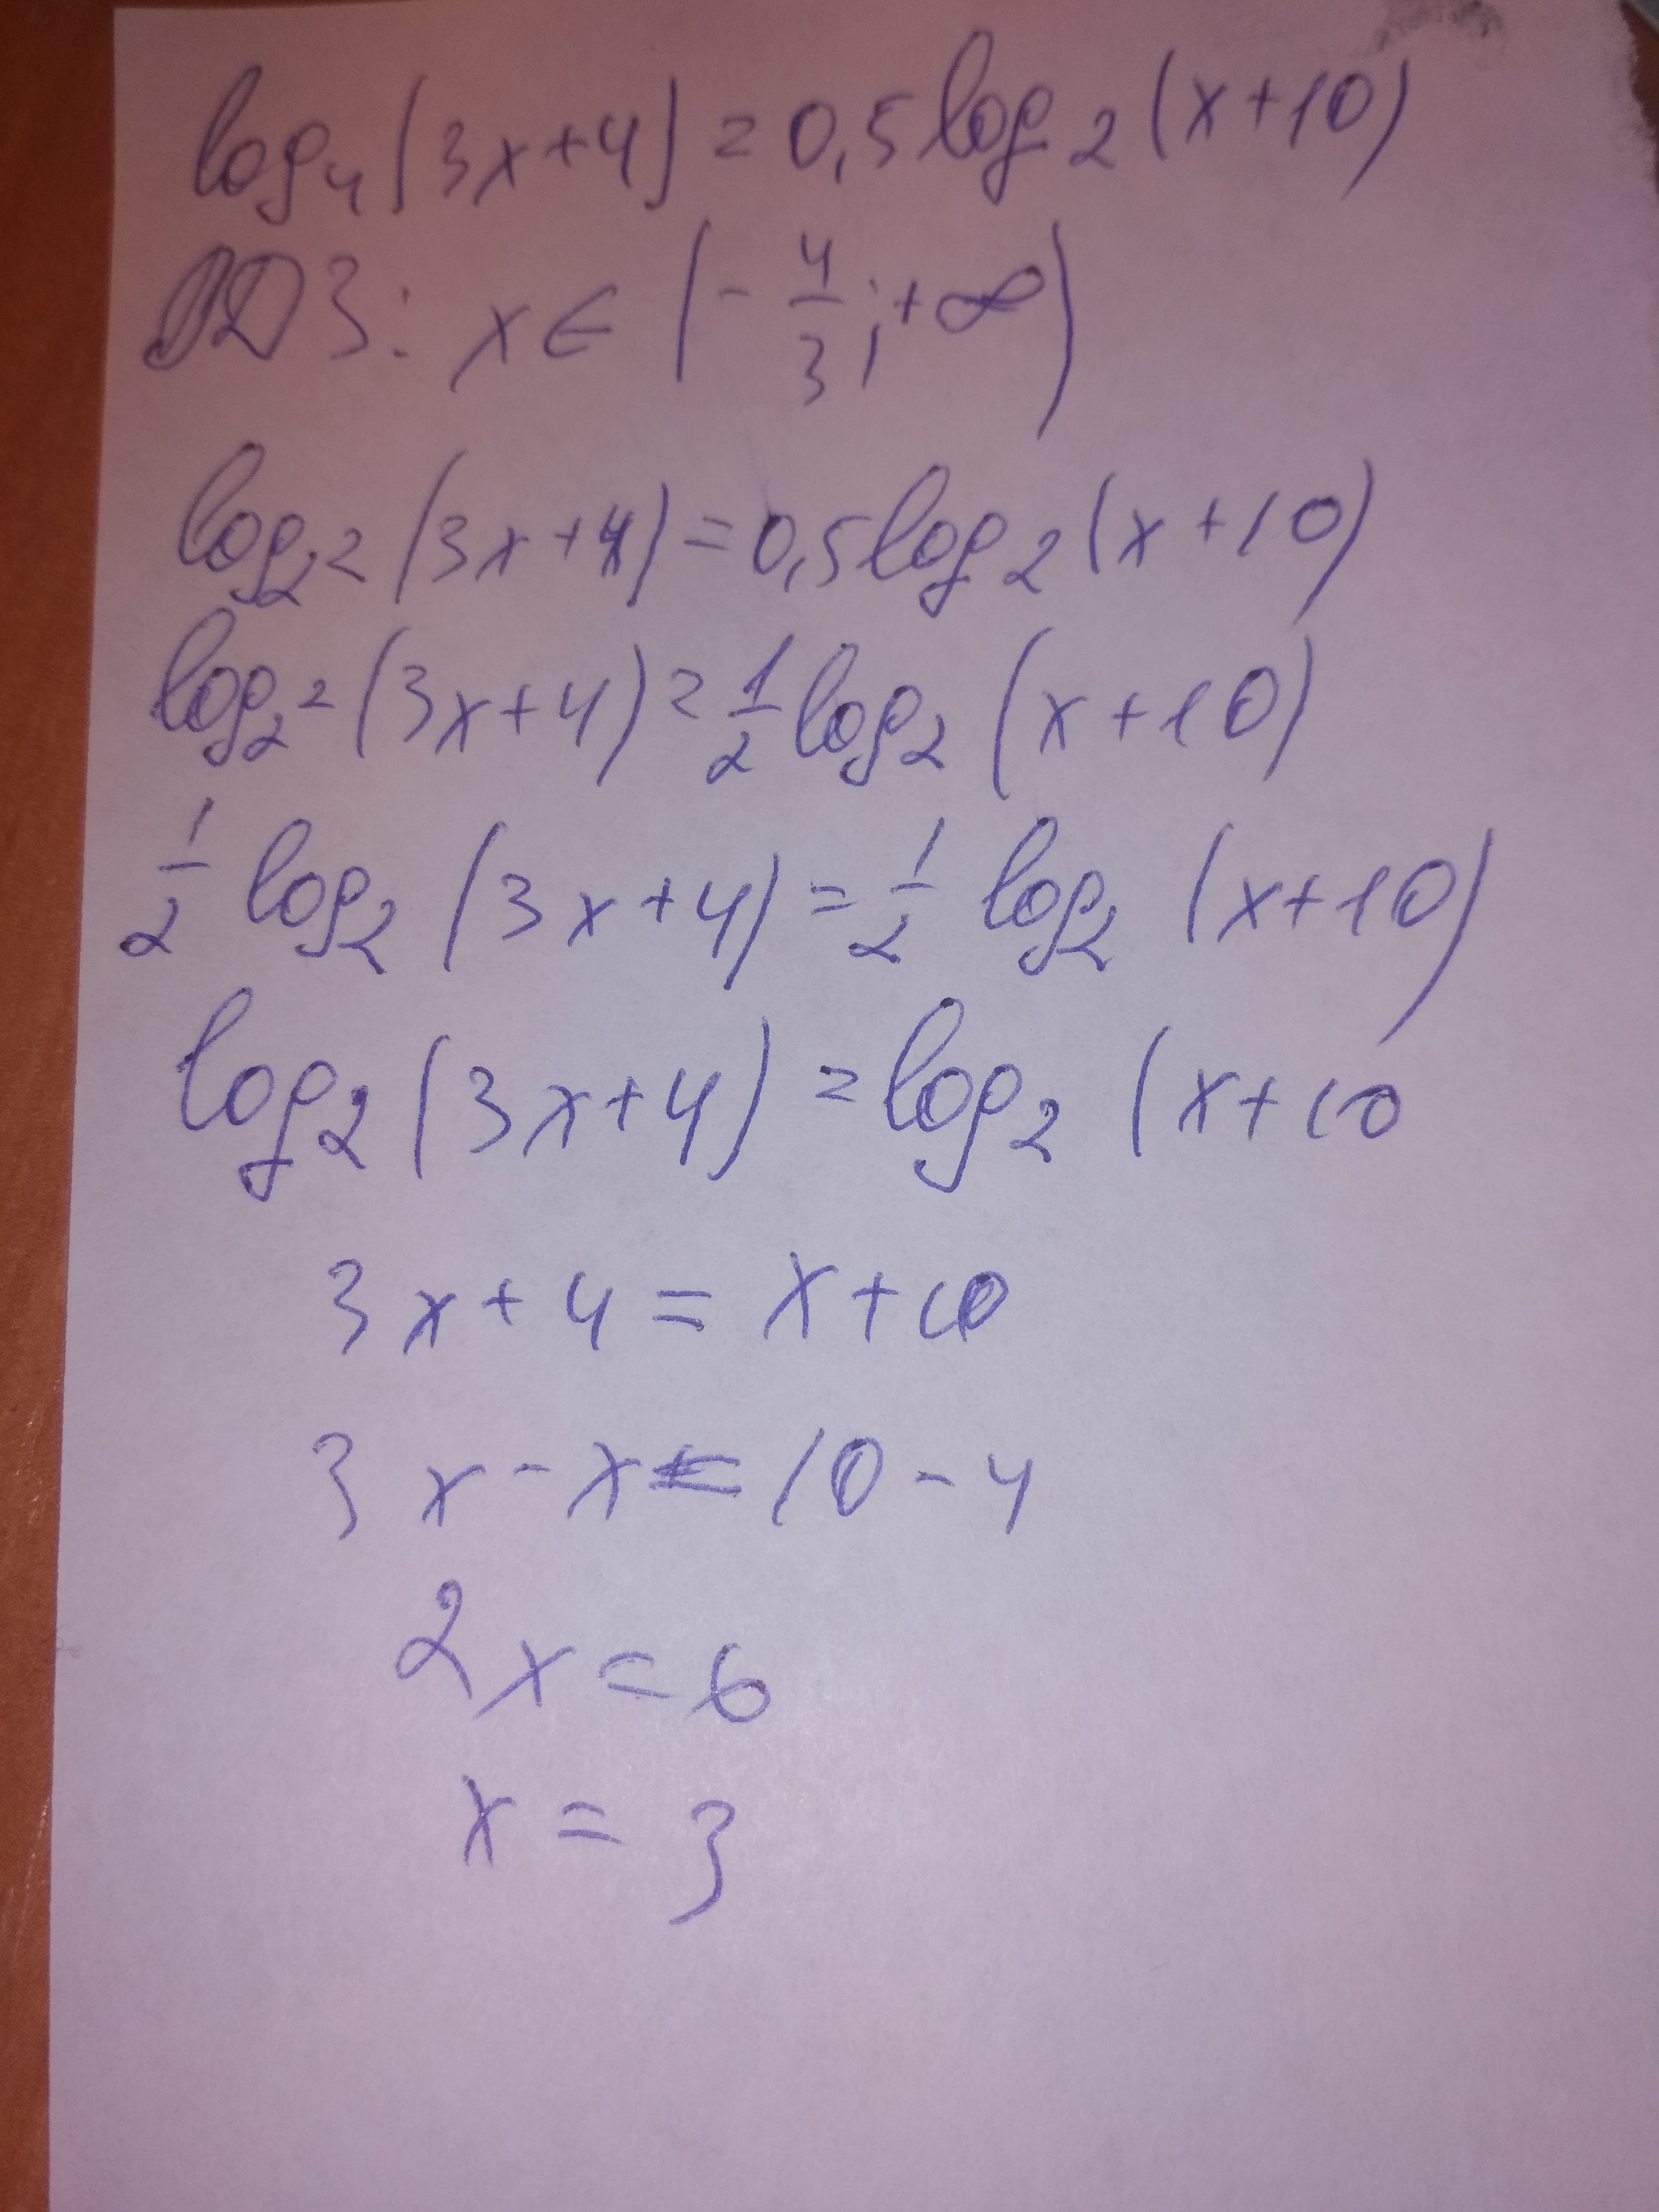 log₄(3x+4)=0,5log₂(x+10)
ОДЗ: x∈(-4/3;+∞)
log₂²(3x+4)=0,5log₂(x+10)
log₂²(3x+4)=1/2log₂(x+10)
1/2 log₂(3x+4)=1/2 log₂(x+10)
log₂(3x+4)=log₂(x+10
3x+4=x+10
3x-x=10-4
2x=6
x=3